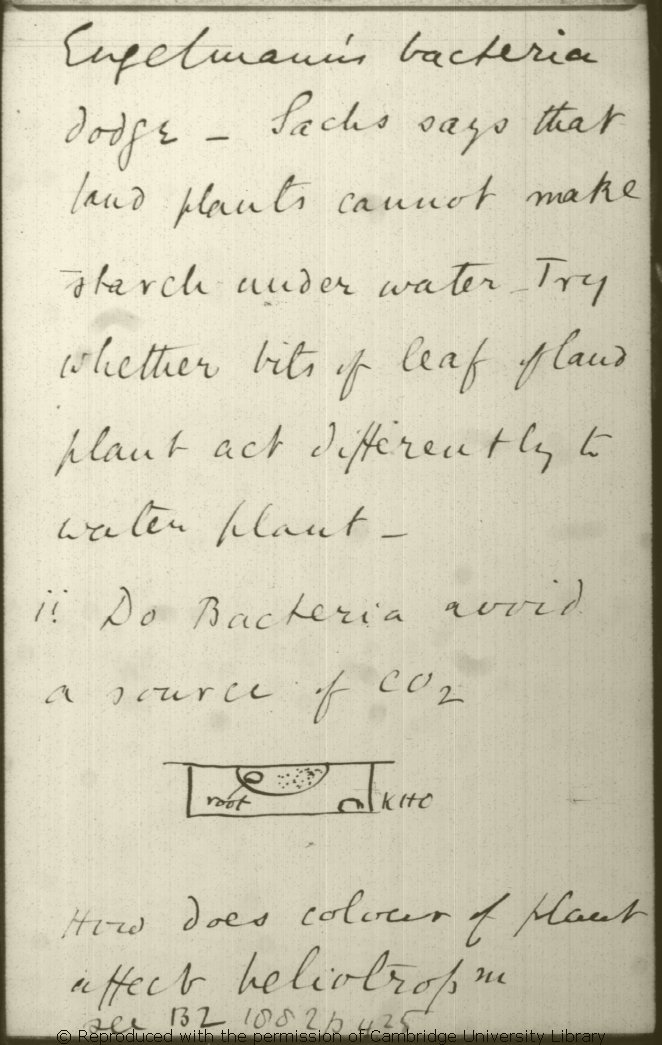 Engelmann's bacteria
dodge – Sachs says that
land plants cannot make
starch under water – Try
whether bits of leaf of land
plant act differently to
water plant –
ii Do Bacteria avoid
a source of CO2
root
KHO
How does colour of plant
affect heliotropsm
see BZ 1882 p 425
© Reproduced with the permission of Cambridge University Library